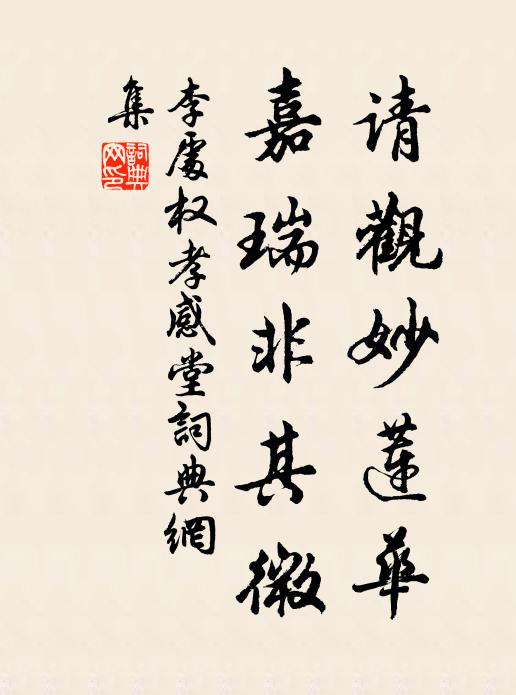 请觀妙蓮華
嘉瑞非其微
李處权孝感堂詞典網
集
詞典網印